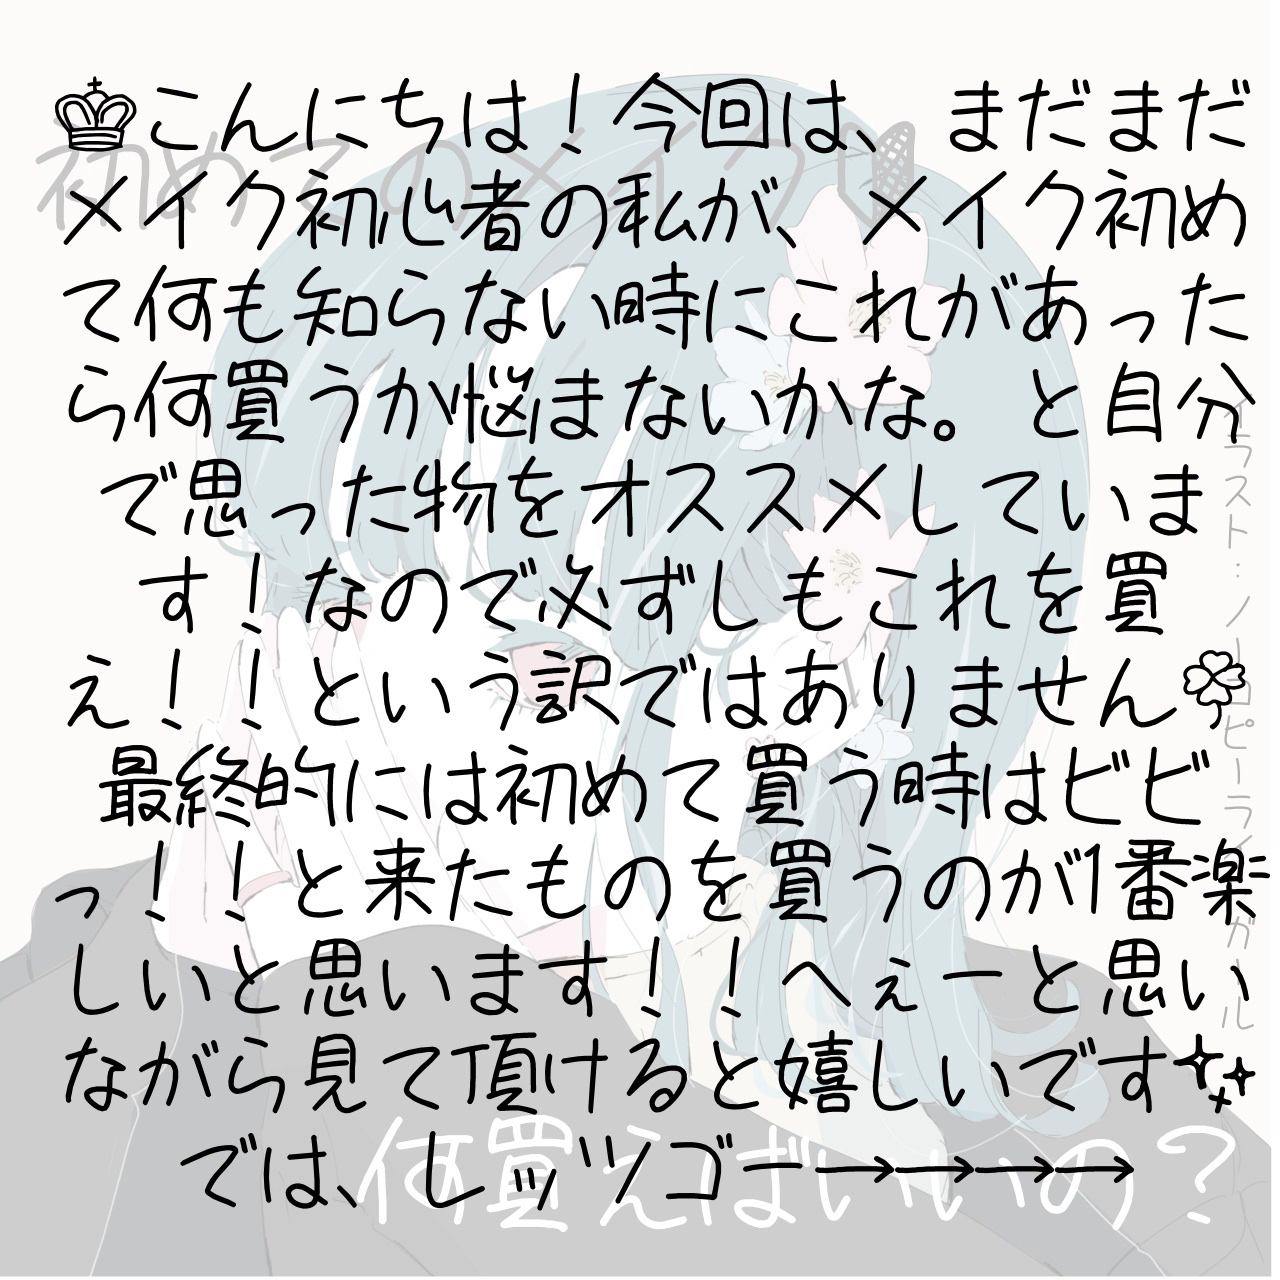 ♔こんにちは！今回は、まだまだ
メイク初心者の私が、メイク初め
て何も知らない時にこれがあった
ら何買うか悩まないかな。と自分
で思った物をオススメしていま
す！なので必ずしもこれを買
え！！という訳ではありません🍀
最終的には初めて買う時はビビ
っ！！と来たものを買うのが1番楽
しいと思います！！へぇーと思い
ながら見て頂けると嬉しいです✨
では、レッツゴー→→→→
初めてのメイク
何買えばいいの？
イラスト：ノーコピーライトガール